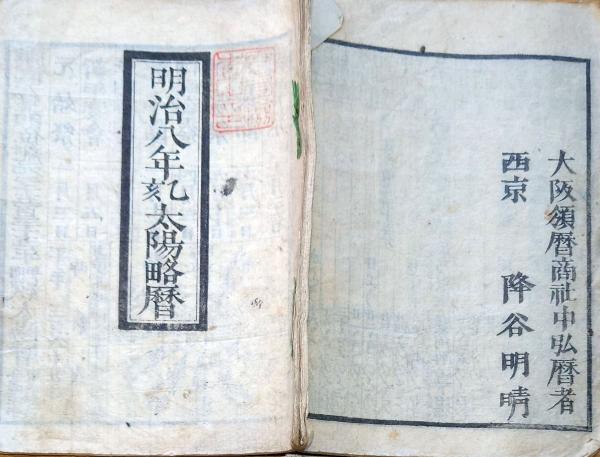 大阪頒暦商社中弘暦者
西京 降谷明晴
明治八年乙刻太陽略暦